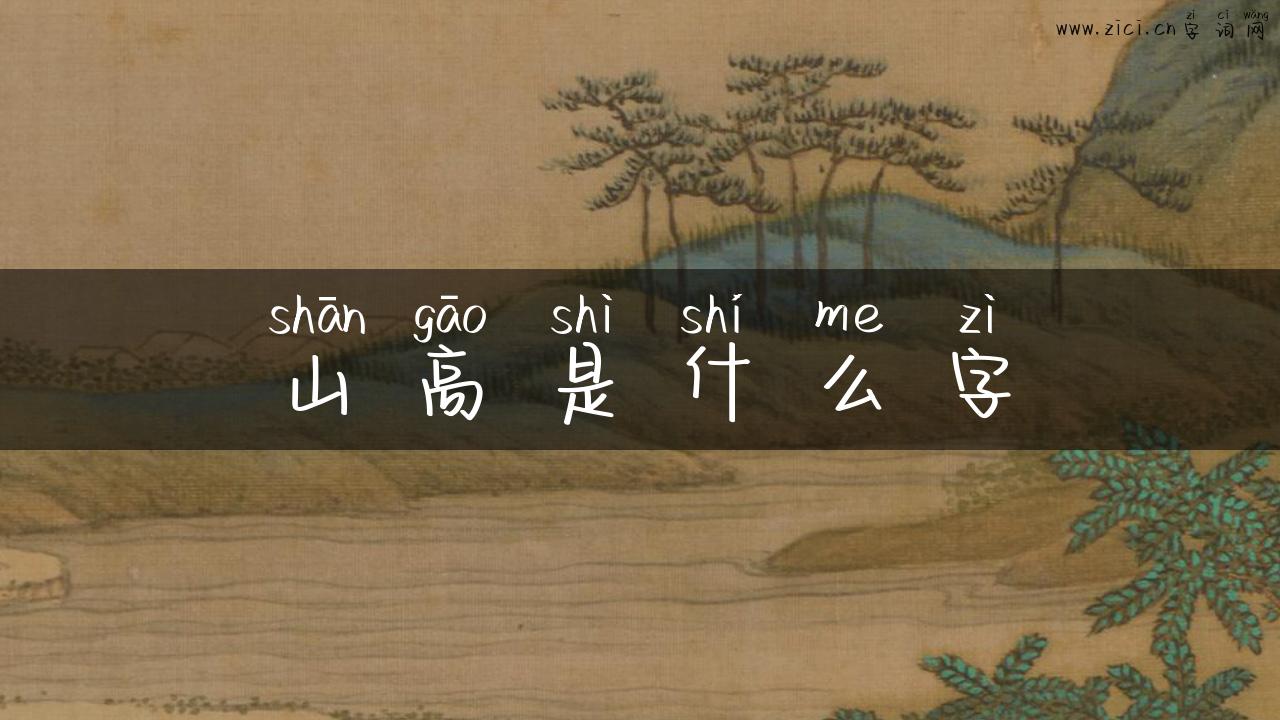 zì cí wǎng
www.zici.cn 字 词 网
shān gāo shì shí me zì
山 高 是 什 么 字